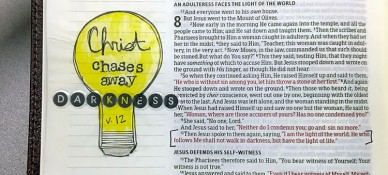 Christ
chases
away
DARKNESS
v. 12
AN ADULTERESS FACES THE LIGHT OF THE WORLD
53 And everyone went to his own house.
8 But Jesus went to the Mount of Olives.
2 Now early in the morning He came again into the temple, and all the
people came to Him; and He sat down and taught them. 3 Then the scribes and
Pharisees brought to Him a woman caught in adultery. And when they had set
her in the midst, 4 they said to Him, "Teacher, this woman was caught in adul-
tery, in the very act. 5 Now Moses, in the law, commanded us that such should
be stoned. But what do You say?" 6 This they said, testing Him, that they might
have something of which to accuse Him. But Jesus stooped down and wrote on
the ground with His finger, as though He did not hear.
7 So when they continued asking Him, He raised Himself up and said to them,
"He who is without sin among you, let him throw a stone at her first." 8 And again
He stooped down and wrote on the ground. 9 Then those who heard it, being
convicted by their conscience, went out one by one, beginning with the oldest
even to the last. And Jesus was left alone, and the woman standing in the midst.
10 When Jesus had raised Himself up and saw no one but the woman, He said to
her, "Woman, where are those accusers of yours? Has no one condemned you?"
11 She said, "No one, Lord."
And Jesus said to her, "Neither do I condemn you; go and sin no more."
12 Then Jesus spoke to them again, saying, "I am the light of the world. He who
follows Me shall not walk in darkness, but have the light of life."
JESUS DEFENDS HIS SELF-WITNESS
13 The Pharisees therefore said to Him, "You bear witness of Yourself; Your
witness is not true."
14 Jesus answered and said to them, "Even if I bear witness of Myself, My wit-